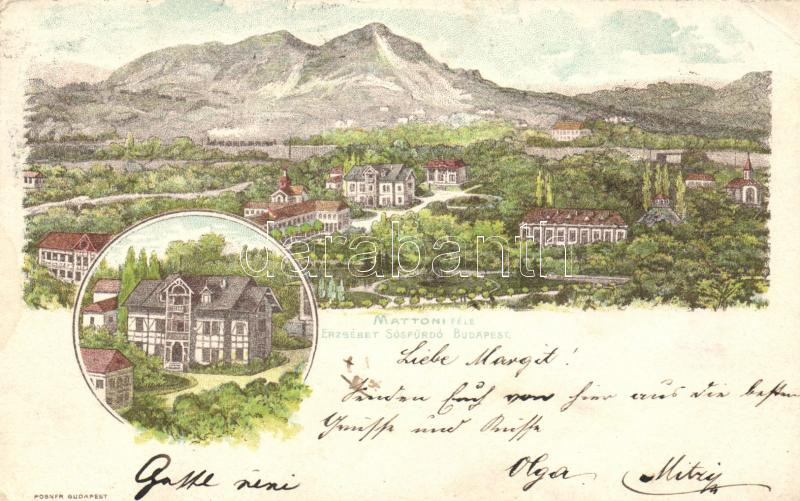 Darabanth
MATTONI FÉLE
ERZSÉBET SÓSFÜRDŐ BUDAPEST.
Liebe Margit!
Senden Euch von hier aus die besten
Grüsse und Küsse
Olga. Mitzi
néni
POSNER BUDAPEST